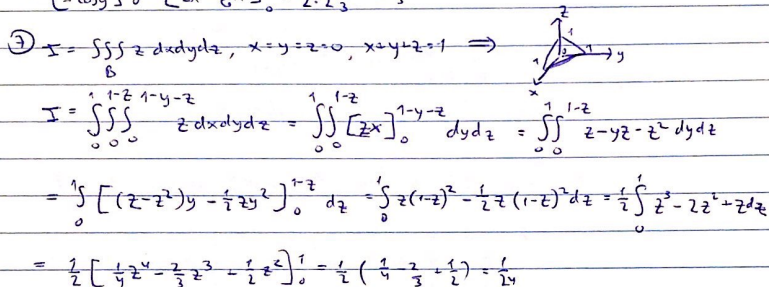 ⑦ I = ∭_B z dxdydz, x=y=z=0, x+y+z=1 ⇒
z 1 1 y 1 x
I = ∫₀¹ ∫₀^{1-z} ∫₀^{1-y-z} z dxdydz = ∫₀¹ ∫₀^{1-z} [zx]₀^{1-y-z} dydz = ∫₀¹ ∫₀^{1-z} z-yz-z² dydz
= ∫₀¹ [(z-z²)y - ½zy²]₀^{1-z} dz = ∫₀¹ z(1-z)² - ½z(1-z)² dz = ½ ∫₀¹ z³-2z²+z dz
= ½ [¼z⁴ - ⅔z³ + ½z²]₀¹ = ½ (¼ - ⅔ + ½) = 1/24